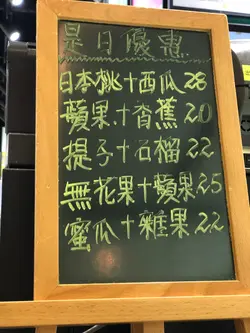 是日優惠
日本桃+西瓜28
蘋果+香蕉20
提子+石榴22
無花果+蘋果25
蜜瓜+雜果22